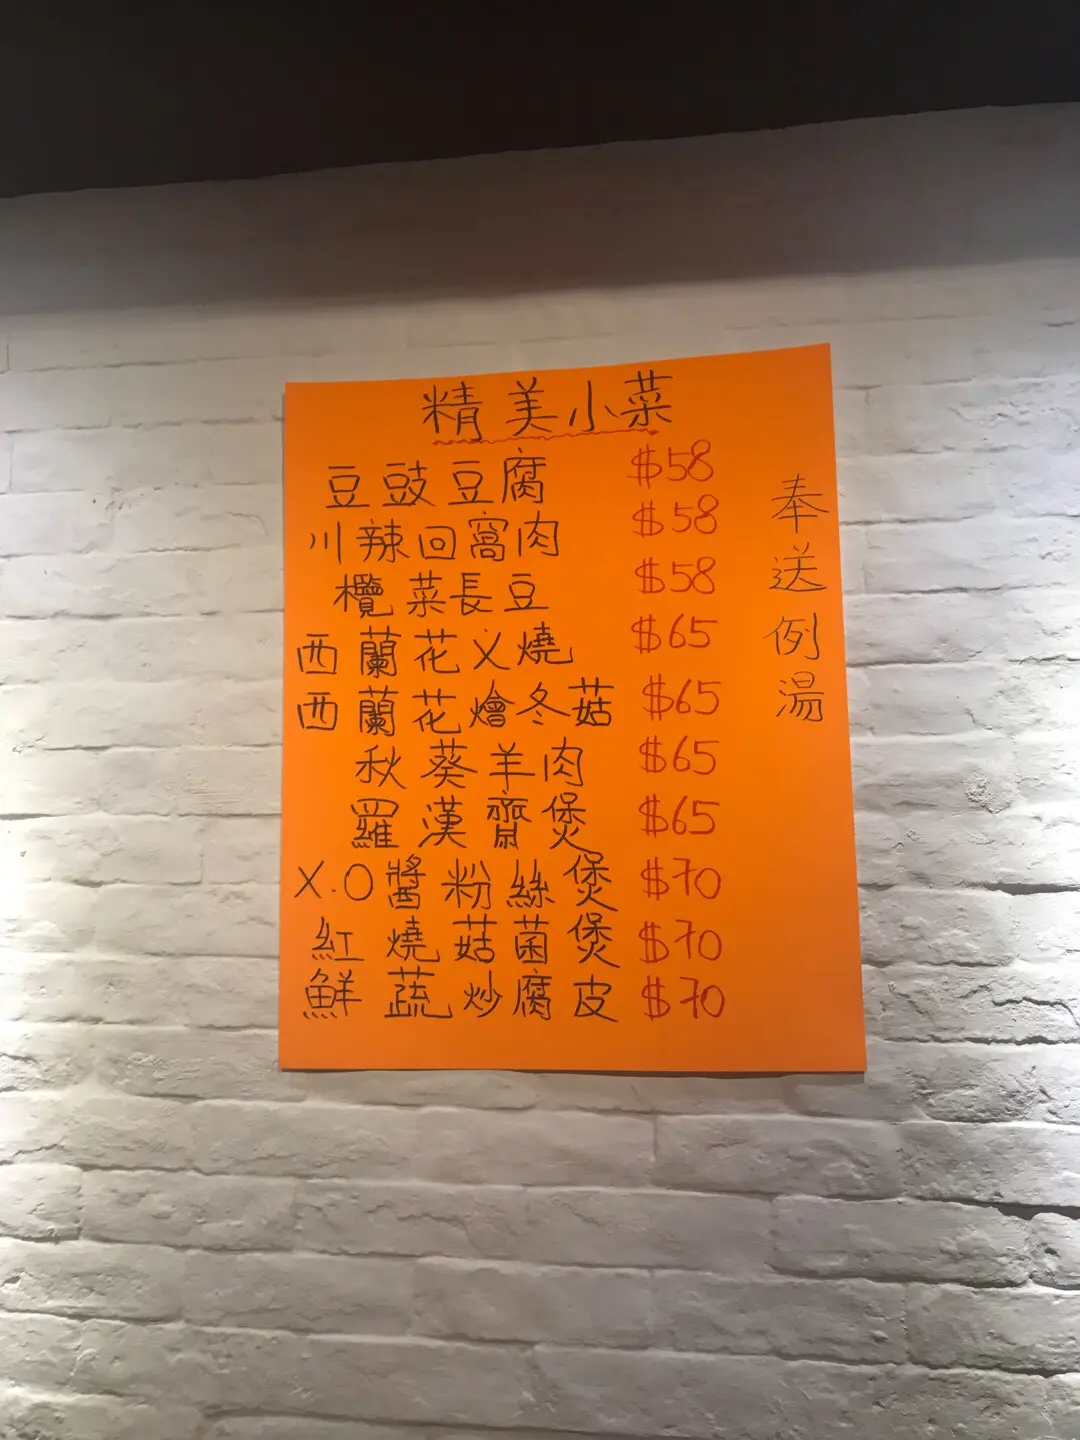 精美小菜
豆豉豆腐 $58
川辣回窩肉 $58
欖菜長豆 $58
西蘭花乂燒 $65
西蘭花燴冬菇 $65
秋葵羊肉 $65
羅漢齋煲 $65
X.O醬粉絲煲 $70
紅燒菇菌煲 $70
鮮蔬炒腐皮 $70
奉送例湯